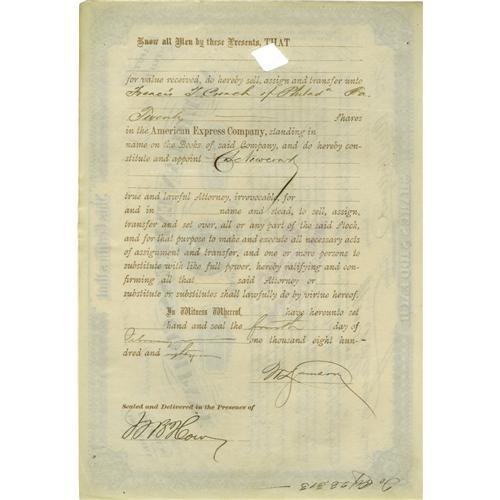 Know all Men by these Presents, THAT
for value received, do hereby sell, assign and transfer unto
Francis T. of Philada Pa.
Twenty Shares
in the American Express Company, standing in
name on the Books of said Company, and do hereby con-
stitute and appoint
true and lawful Attorney, irrevocable, for
and in name and stead, to sell, assign,
transfer and set over, all or any part of the said Stock,
and for that purpose to make and execute all necessary acts
of assignment and transfer, and one or more persons to
substitute with like full power, hereby ratifying and con-
firming all that said Attorney or
substitute or substitutes shall lawfully do by virtue hereof.
In Witness Whereof, have hereunto set
hand and seal the fourth day of
one thousand eight hun-
dred and
Sealed and Delivered in the Presence of